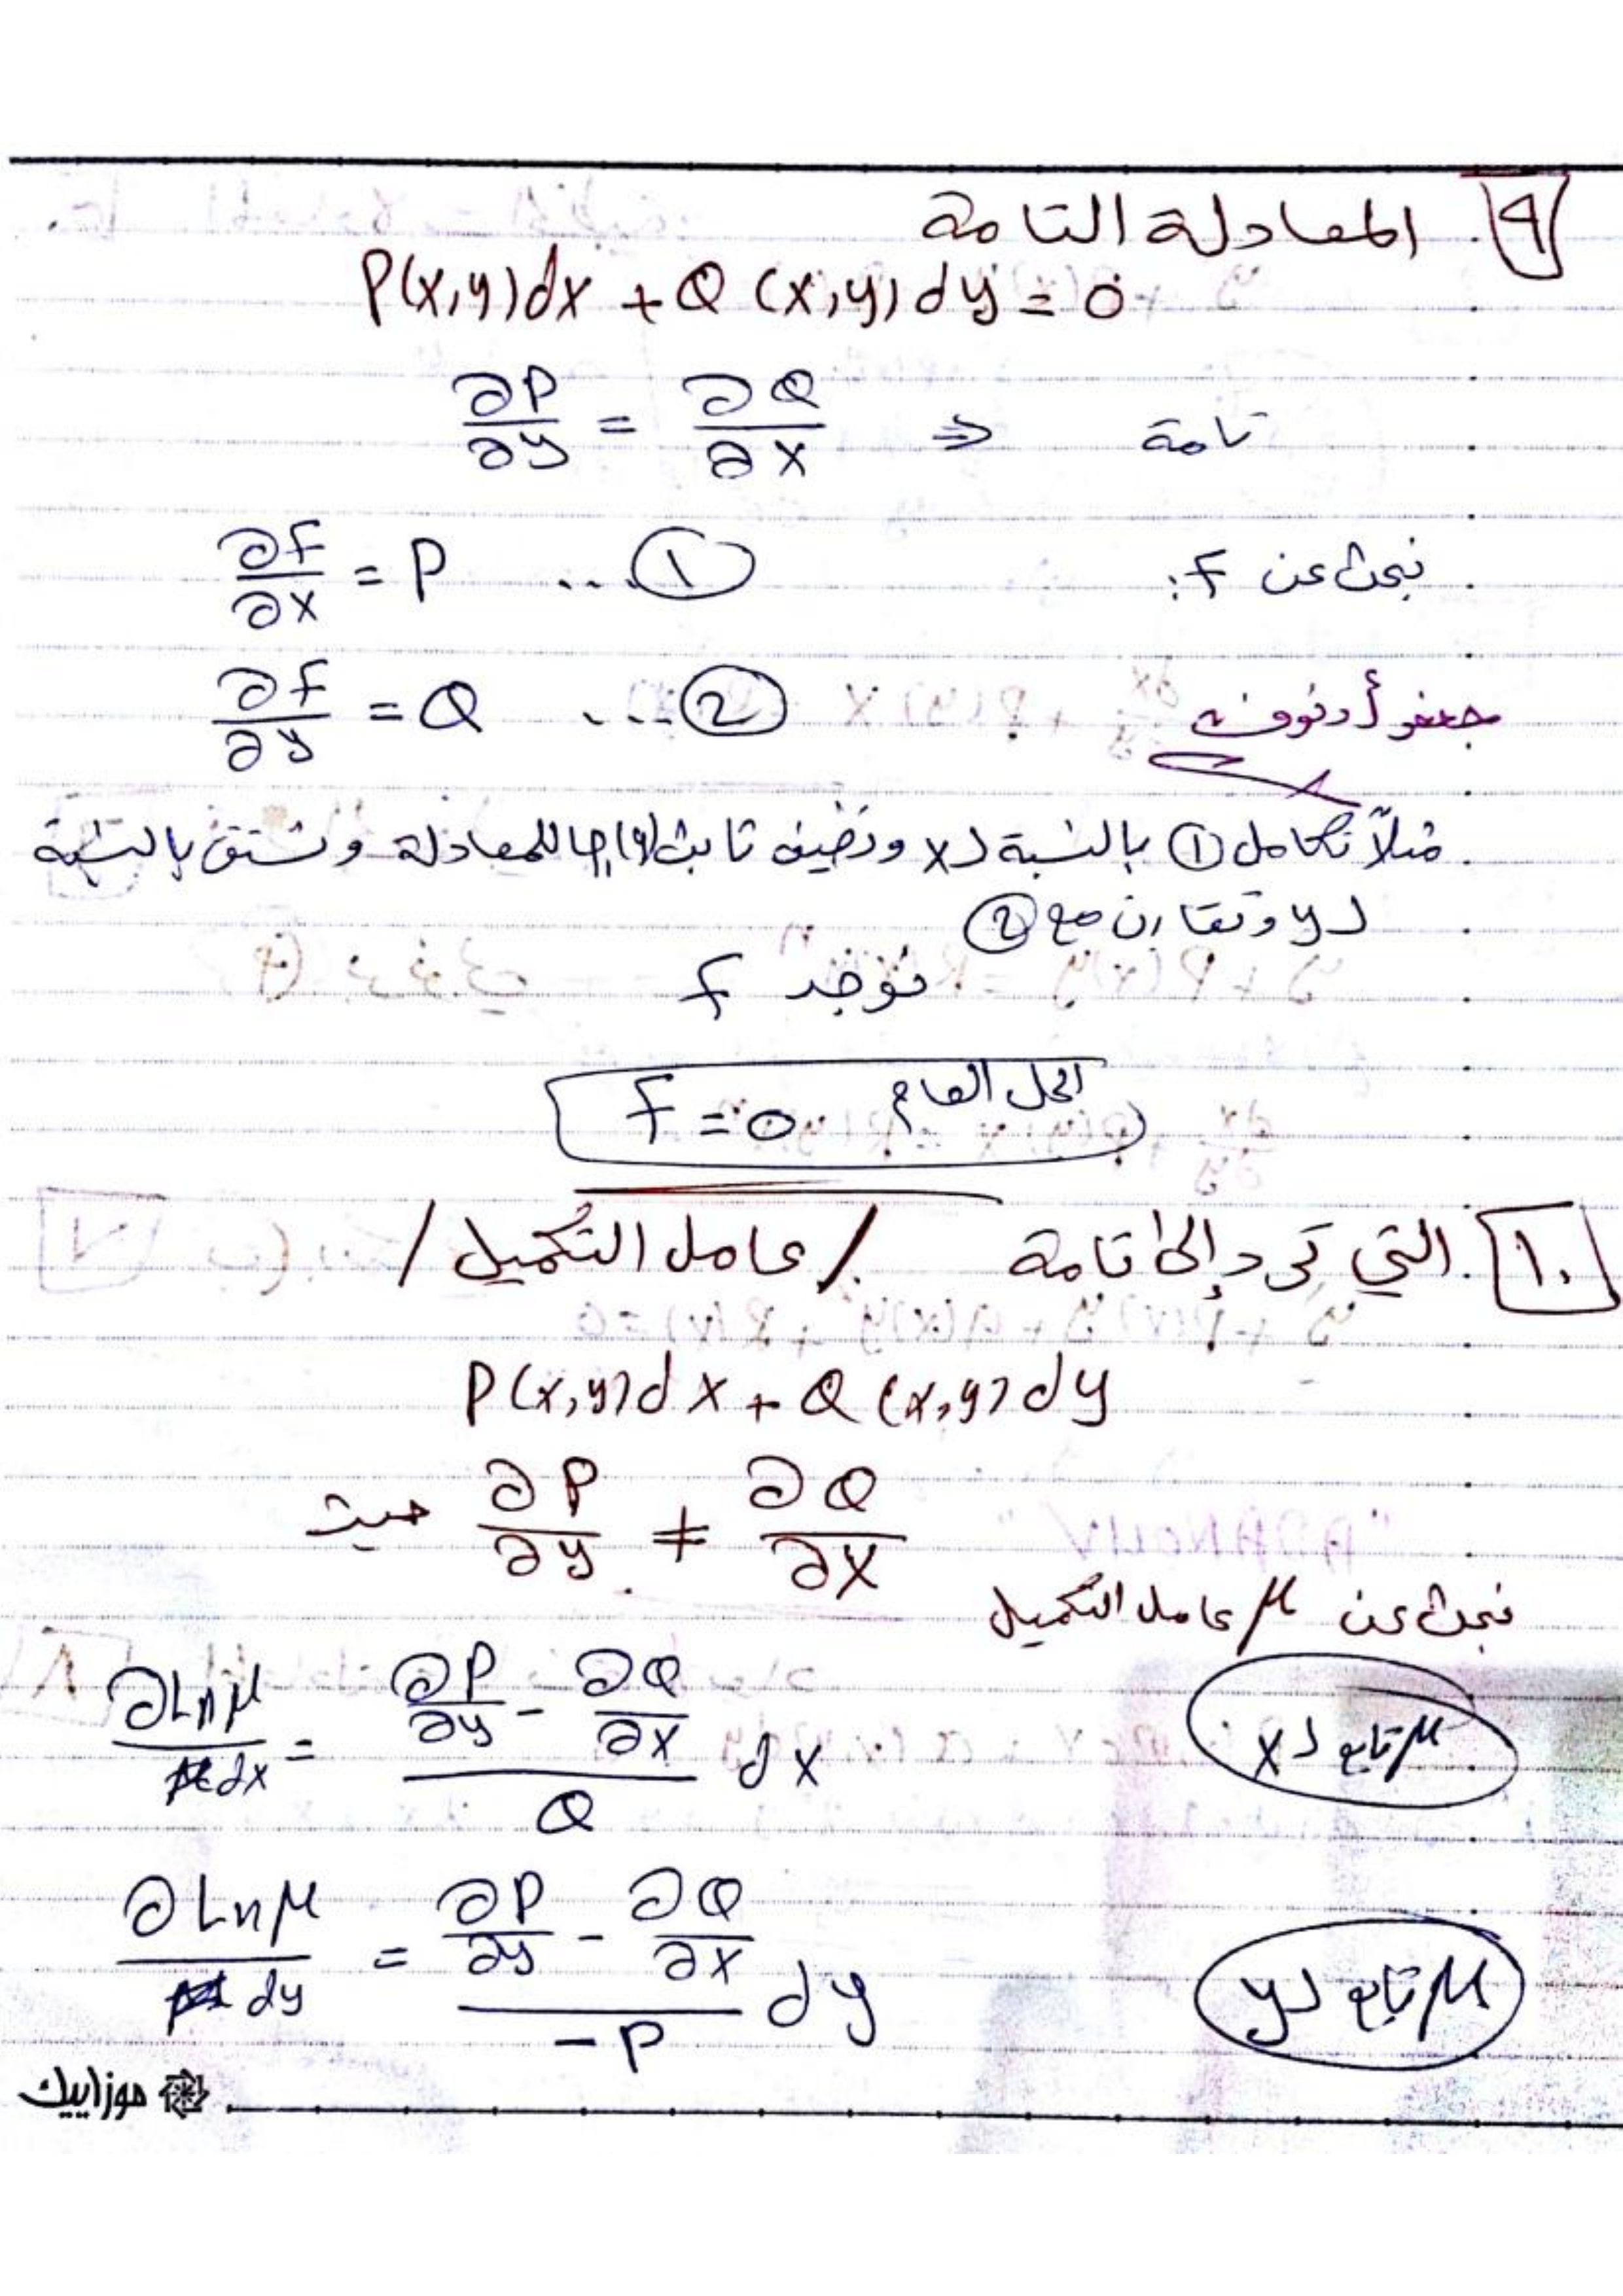 ٩. المعادلة التامة
P(x,y)dx + Q(x,y)dy = 0
∂P/∂y = ∂Q/∂x ⇒ تامة
نبحث عن F:
∂F/∂x = P ... ①
∂F/∂y = Q ... ②
جعفر أدنوف
مثلاً نكامل ① بالنسبة لـ x ونضيف ثابت للمعادلة ونشتق بالنسبة
لـ y ونقارن مع ②
نوجد F
الحل العام F = 0
١٠. التي ترد إلى تامة / عامل التكميل /
P(x,y)dx + Q(x,y)dy
حيث ∂P/∂y ≠ ∂Q/∂x
نبحث عن μ عامل التكميل
μ تابع لـ x
∂Lnμ/dx = (∂P/∂y - ∂Q/∂x)/Q dx
μ تابع لـ y
∂Lnμ/dy = (∂P/∂y - ∂Q/∂x)/-P dy
موزاييك